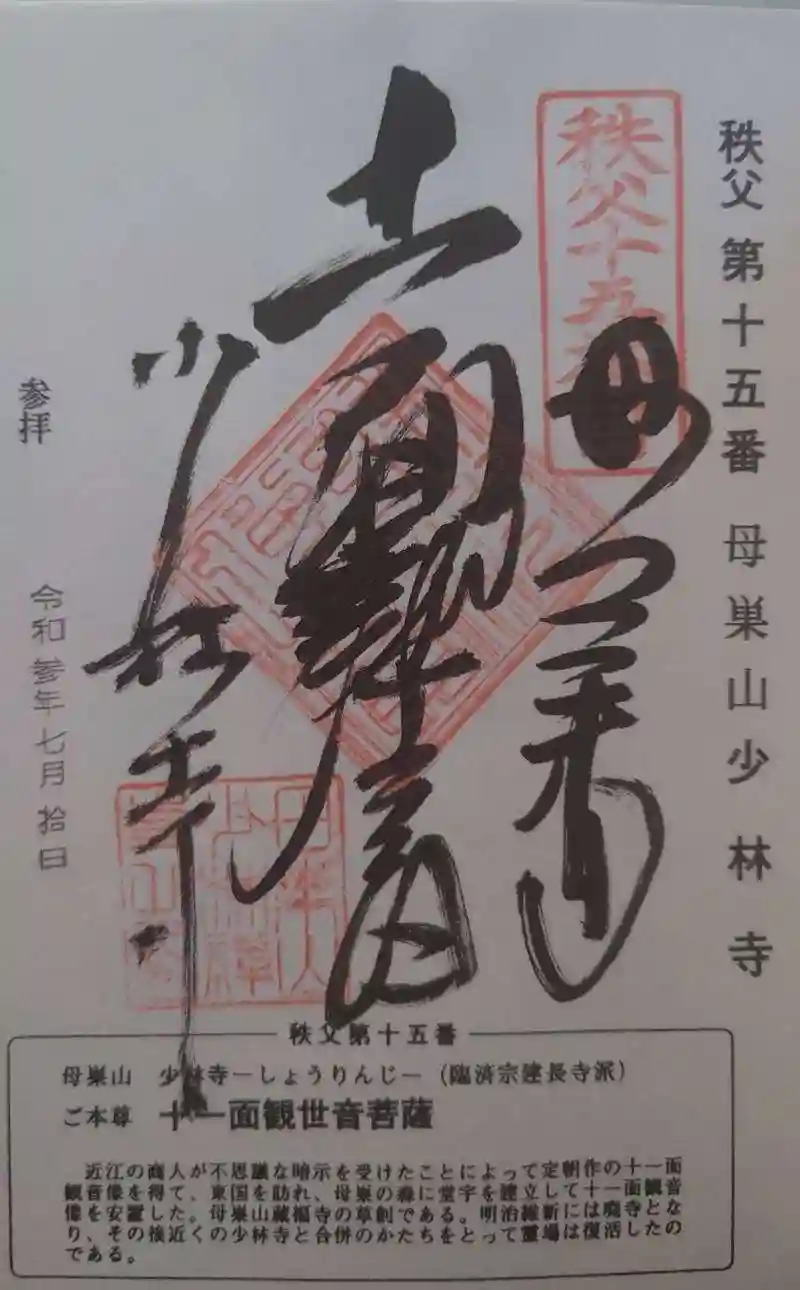 秩父 第十五番 母巣山少林寺
秩父十五番
十一面観世音
少林寺
参拝
令和参年七月拾日
秩父第十五番
母巣山 少林寺ーしょうりんじー（臨済宗建長寺派）
ご本尊 十一面観世音菩薩
近江の商人が不思議な暗示を受けたことによって定朝作の十一面
観音像を得て、東国を訪れ、母巣の森に堂宇を建立して十一面観音
像を安置した。母巣山蔵福寺の草創である。明治維新には廃寺とな
り、その後近くの少林寺と合併のかたちをとって霊場は復活したの
である。